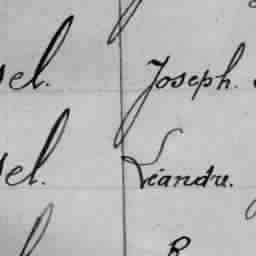 sel. Joseph.
sel. Léandre.